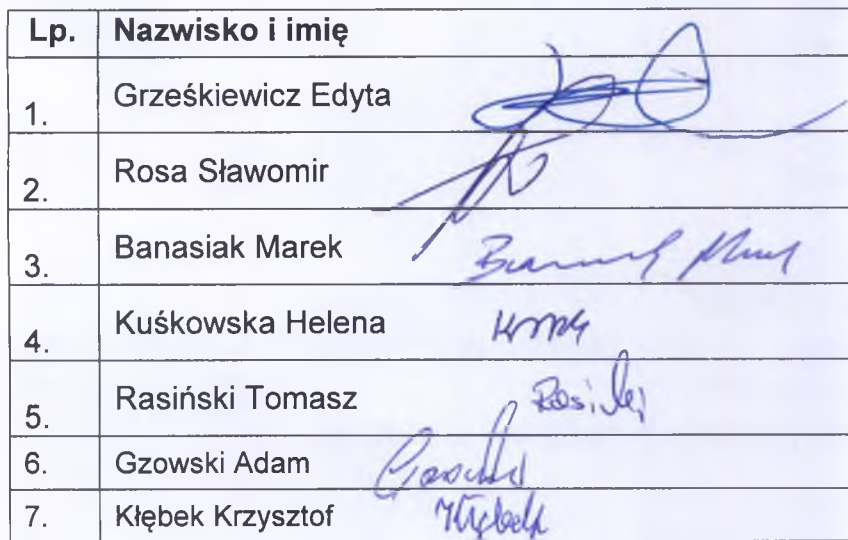 Lp. Nazwisko i imię
1. Grześkiewicz Edyta
2. Rosa Sławomir
3. Banasiak Marek
4. Kuśkowska Helena
5. Rasiński Tomasz
6. Gzowski Adam
7. Kłębek Krzysztof